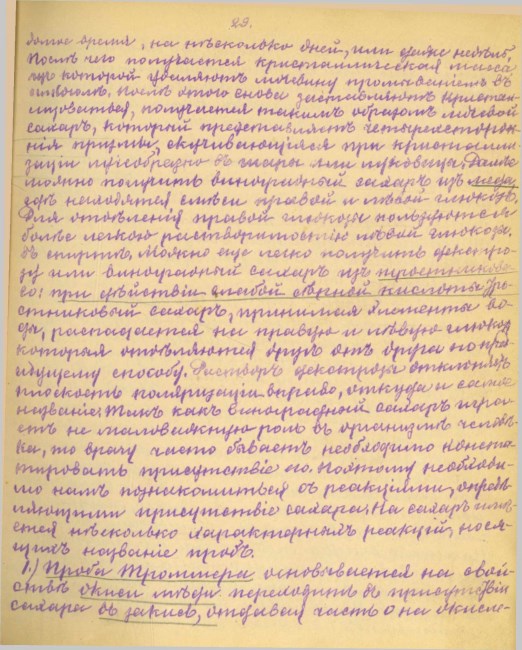 29.
время, на нѣсколько дней, или даже недѣль
Послѣ чего получается кристаллическая масса
изъ которой удаляютъ мочевину промываніемъ въ
послѣ этого снова заставляютъ кристал-
лизоваться, получается такимъ образомъ мочевой
сахаръ, который представляетъ четырехсторон-
нія призмы, скучивающіяся при кристалли-
заціи въ шары или луковицы. Далѣе
можно получить виноградный сахаръ изъ меда
гдѣ находятся смѣси правой и лѣвой глюкозъ.
Для отдѣленія правой глюкозы пользуются
болѣе легкою растворимостію лѣвой глюкозы
въ спиртѣ. Можно еще легко получить декстро-
зу или виноградный сахаръ изъ тростниково-
го: при дѣйствіи слабой сѣрной кислоты тро-
стниковый сахаръ, принимая элементы во-
ды, распадается на правую и лѣвую глюкозу
которыя отдѣляются другъ отъ друга по пре-
дыдущему способу. Растворъ декстрозы отклоняетъ
плоскость поляризаціи вправо, откуда и самое
названіе. Такъ какъ виноградный сахаръ игра-
етъ не маловажную роль въ организмѣ человѣ-
ка, то врачу часто бываетъ необходимо конста-
тировать присутствіе его. Поэтому необходи-
мо намъ познакомиться съ реакціями, опредѣ-
ляющими присутствіе сахара. На сахаръ имѣ-
ется нѣсколько характерныхъ реакцій, нося-
щихъ названіе пробъ.
1.) Проба Троммера основывается на свой-
ствѣ окиси мѣди переходить въ присутствіи
сахара въ закись, отдавая часть O на окисле-